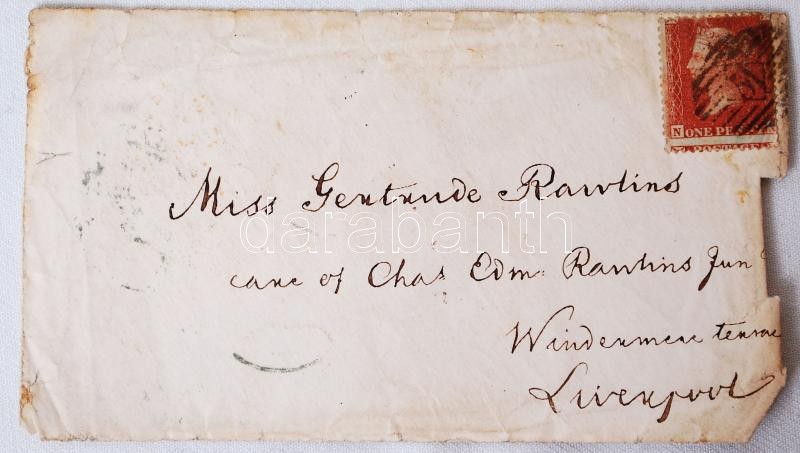 N ONE PE
POSTAGE
Miss Gertrude Rawlins
darabanth
care of Chas Edm. Rawlins Junr
Windermere terrace
Liverpool